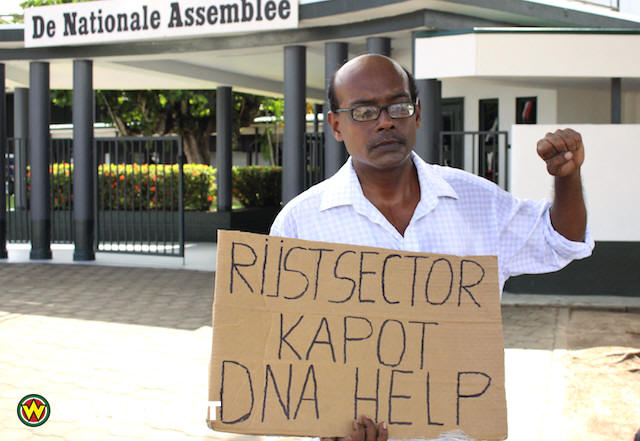 De Nationale Assemblée
RIJSTSECTOR
KAPOT
DNA HELP
W
T